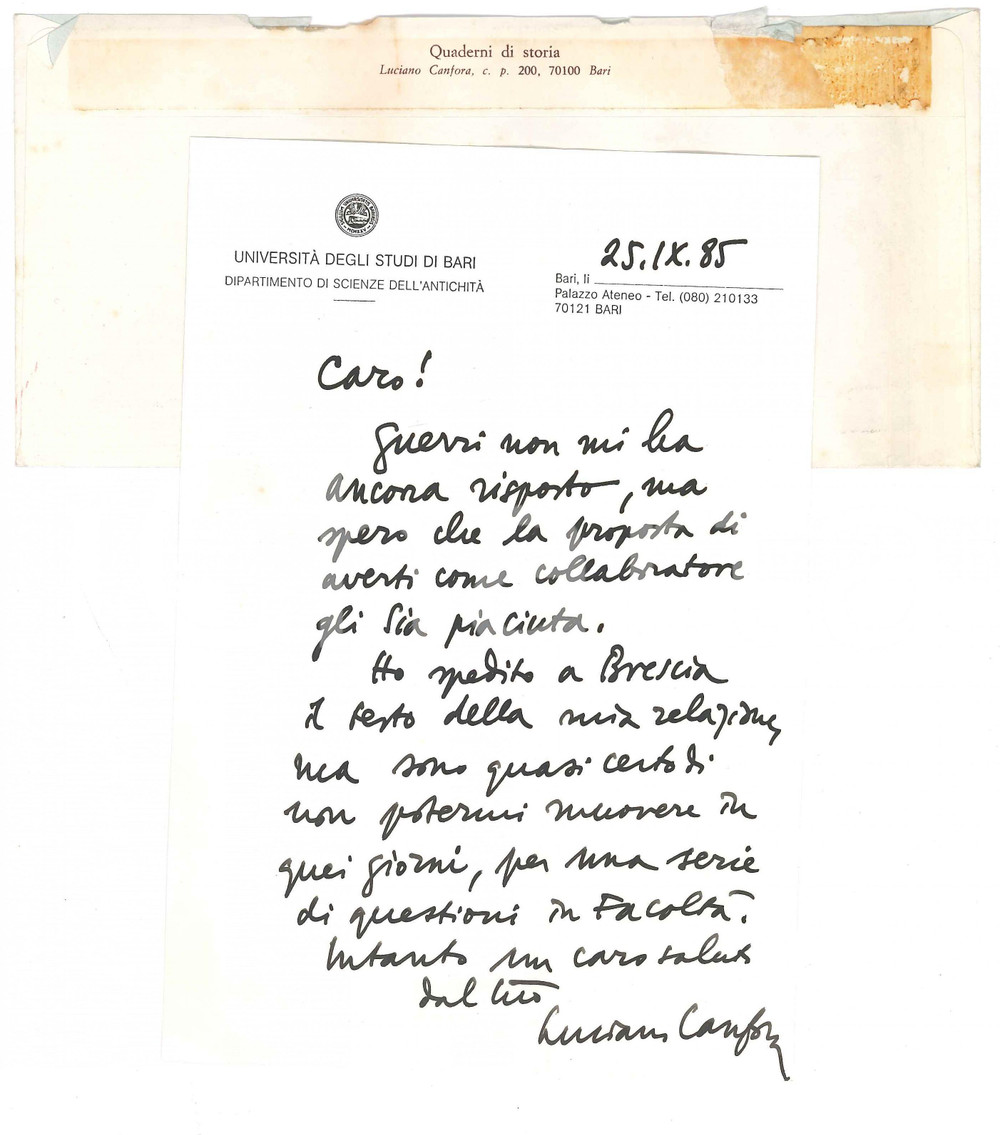 Quaderni di storia
Luciano Canfora, c. p. 200, 70100 Bari
UNIVERSITÀ DEGLI STUDI DI BARI
DIPARTIMENTO DI SCIENZE DELL'ANTICHITÀ
25.IX.85
Bari, li
Palazzo Ateneo - Tel. (080) 210133
70121 BARI
Caro!
Guerri non mi ha
ancora risposto, ma
spero che la proposta di
averti come collaboratore
gli sia piaciuta.
Ho spedito a Brescia
il testo della mia relazione,
ma sono quasi certo di
non potermi muovere in
quei giorni, per una serie
di questioni in Facoltà.
Intanto un caro saluto
dal tuo
Luciano Canfora